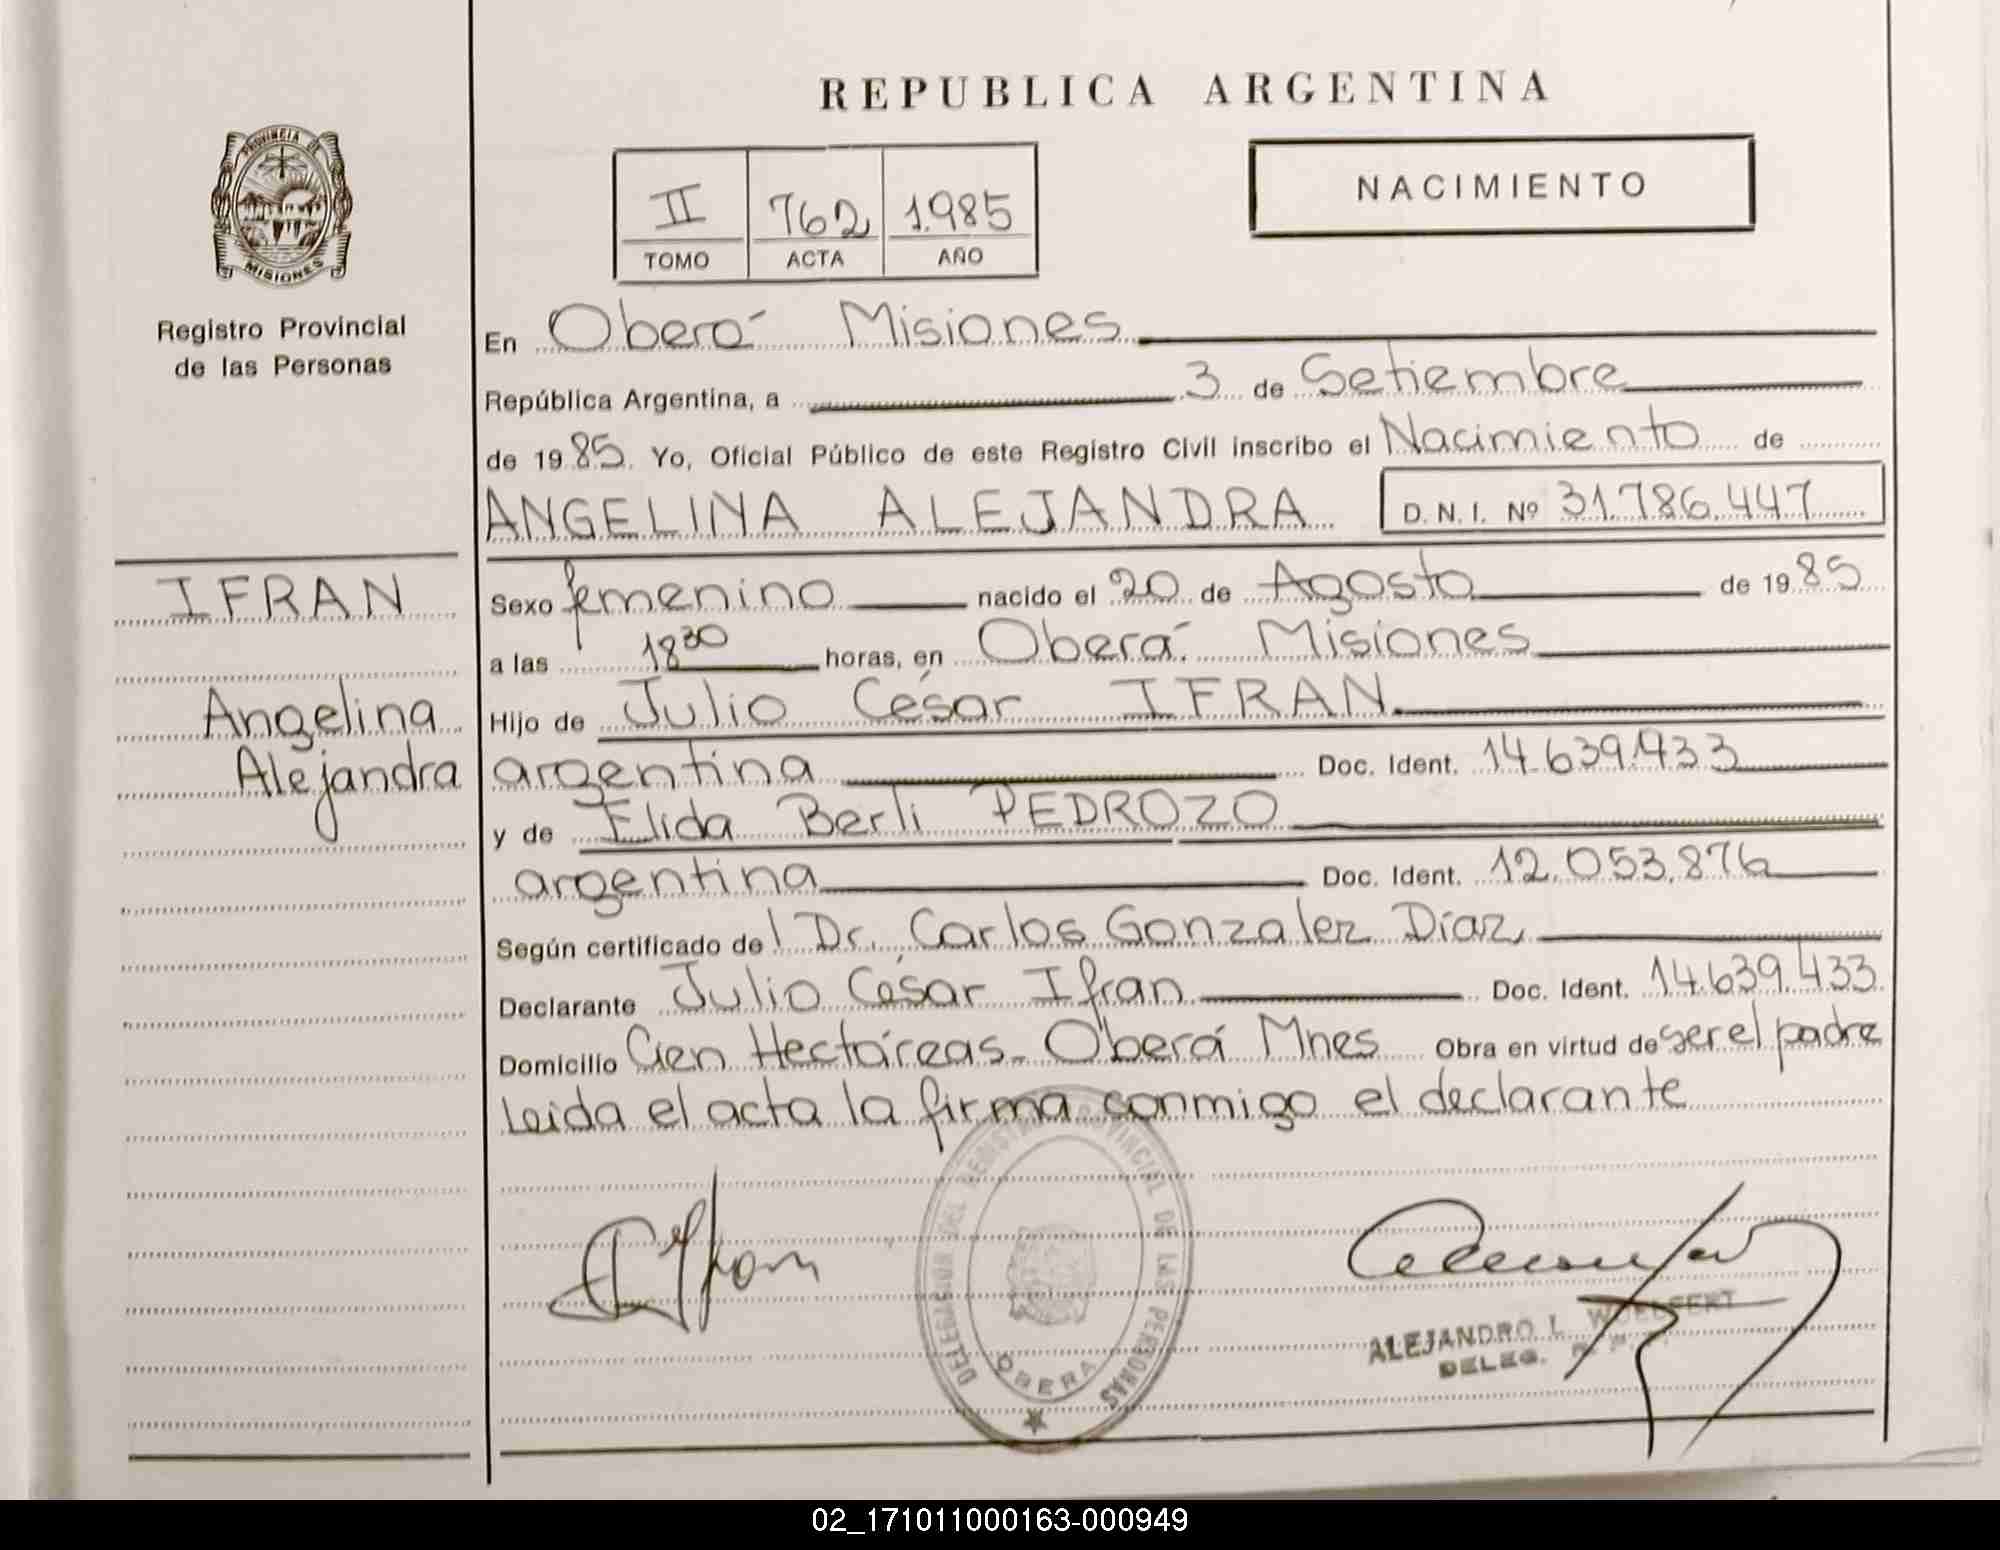 REPUBLICA ARGENTINA
PROVINCIA DE
MISIONES
Registro Provincial
de las Personas
NACIMIENTO
II 762 1.985
TOMO ACTA AÑO
En Oberá Misiones
República Argentina, a 3 de Setiembre
de 1985. Yo, Oficial Público de este Registro Civil inscribo el Nacimiento de
ANGELINA ALEJANDRA D.N.I. Nº 31.786.447
IFRAN
Angelina
Alejandra
Sexo femenino nacido el 20 de Agosto de 1985
a las 18 30 horas, en Oberá Misiones
Hijo de Julio César IFRAN
argentina Doc. Ident. 14.639.433
y de Elida Berli PEDROZO
argentina Doc. Ident. 12.053.876
Según certificado del Dr. Carlos Gonzalez Díaz
Declarante Julio César Ifran Doc. Ident. 14.639.433
Domicilio Cien Hectáreas - Oberá Mnes Obra en virtud de ser el padre
Leida el acta la firma conmigo el declarante
Ifran
DELEGACION DEL REGISTRO PROVINCIAL DE LAS PERSONAS
OBERA
ALEJANDRO L. WOELFERT
DELEG.
02_171011000163-000949